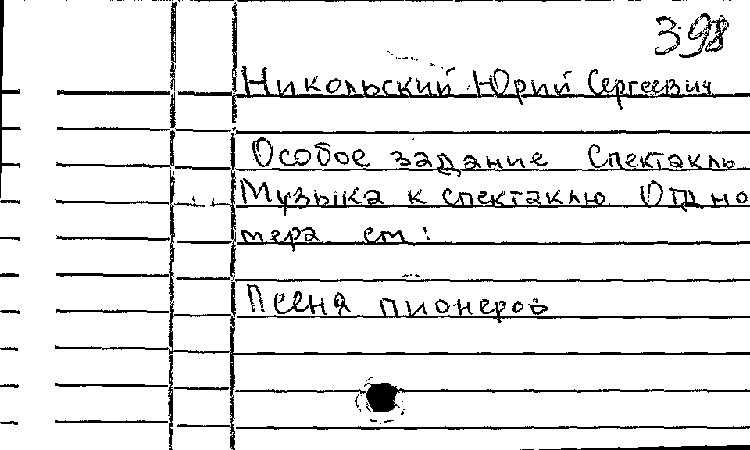 398
Никольский Юрий Сергеевич
Особое задание Спектакль
Музыка к спектаклю Отд но
мера см:
Песня пионеров